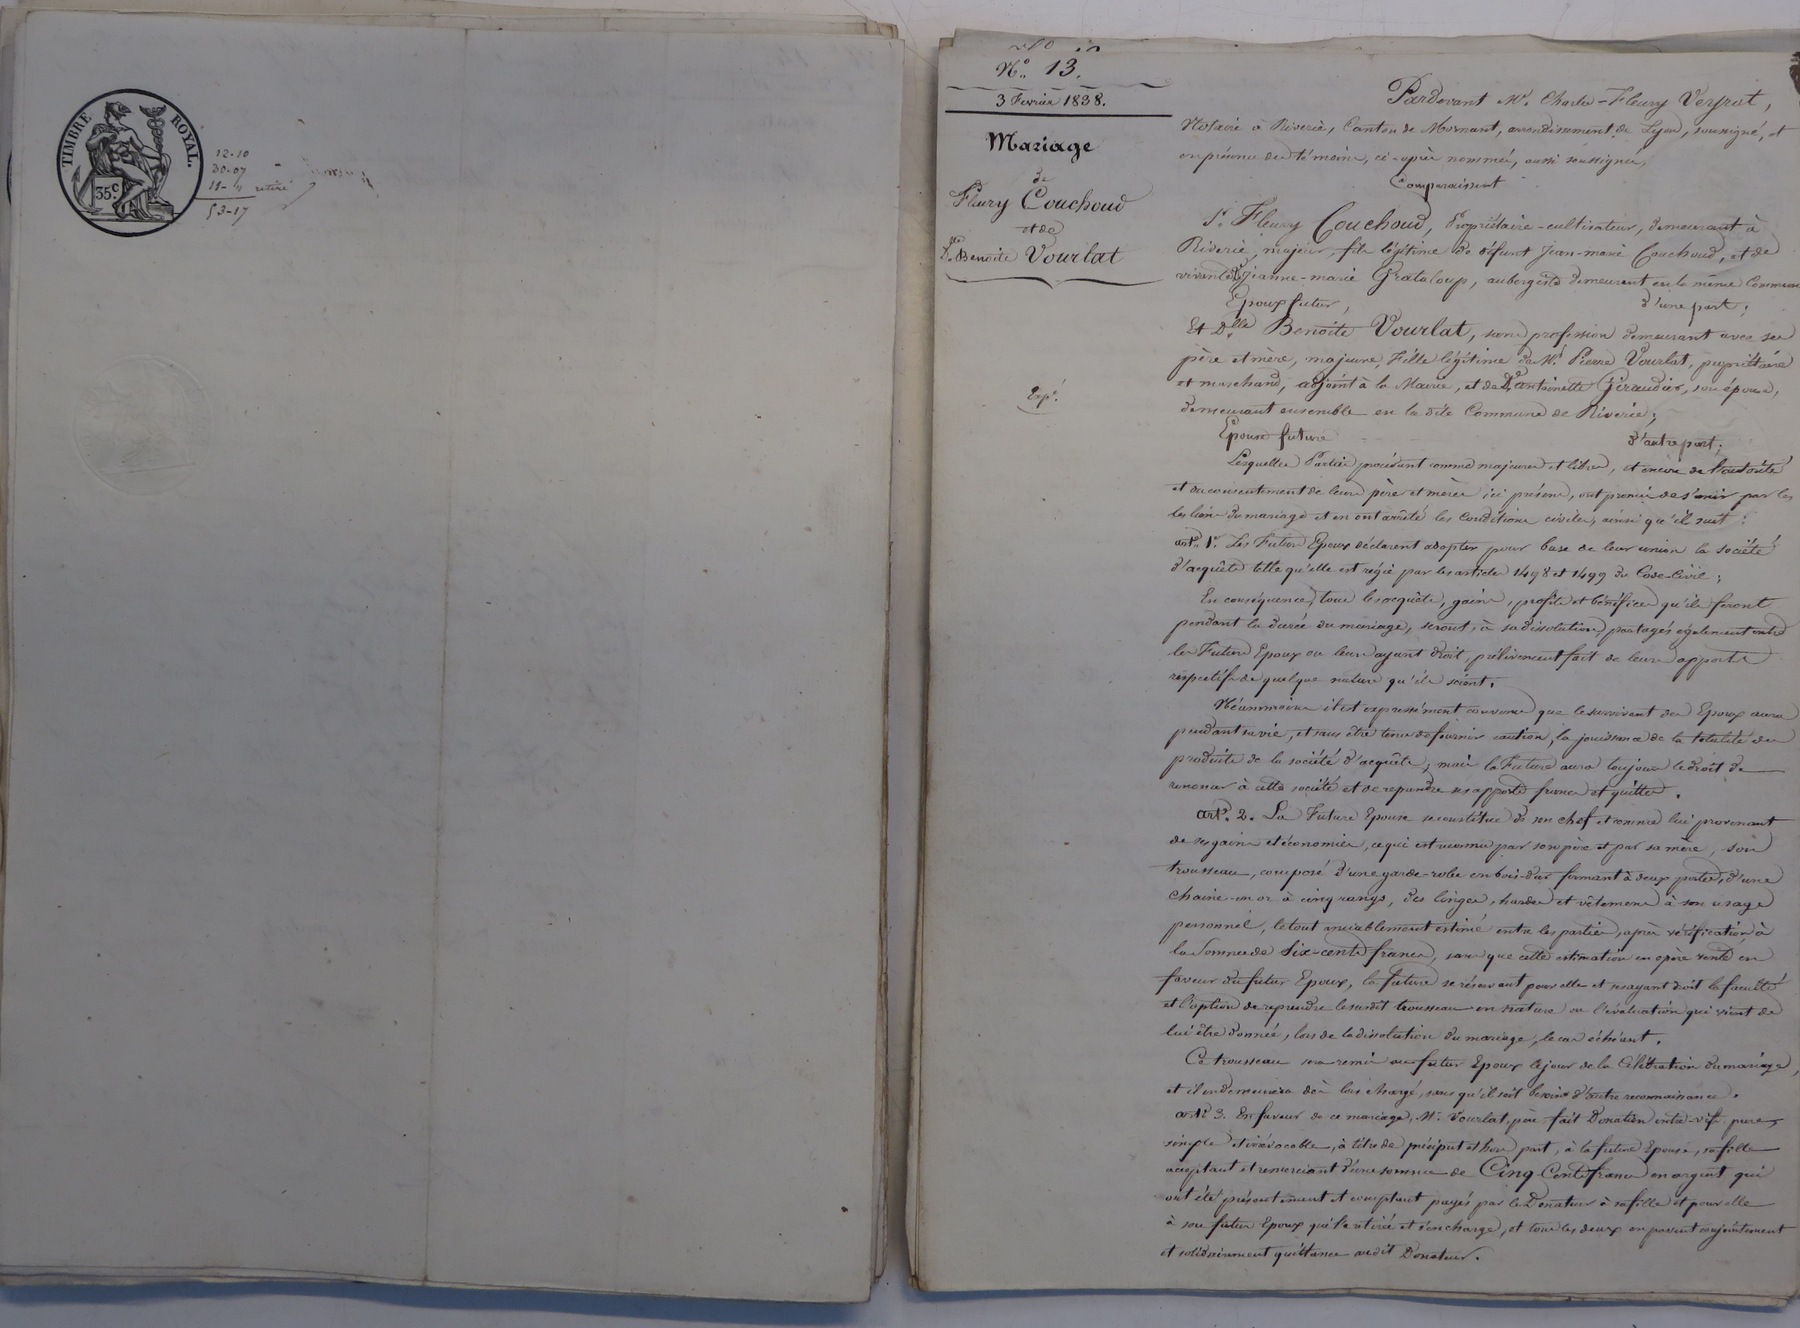 TIMBRE ROYAL.
35c
12-10
30-07
11- " retiré
53-17
N.º 13.
3 Fevrier 1838.
Mariage
de
Fleury Couchoud
et de
Dlle Benoite Vourlat
Expé.
Pardevant Me. Charles-Fleury Veyrat,
Notaire à Riverie, Canton de Mornant, arrondissement de Lyon, soussigné, et
en présence des témoins, ci-après nommés, aussi soussignés,
Comparaissent
Sr. Fleury Couchoud, Propriétaire-cultivateur, demeurant à
Riverie, majeur, fils légitime de défunt Jean-marie Couchoud, et de
vivante De Jeanne-marie Grataloup, aubergiste demeurant en la même Commune
Epoux futur, d'une part;
Et Dlle Benoite Vourlat, sans profession demeurant avec ses
père et mère, majeure, Fille légitime de Mr. Pierre Vourlat, propriétaire
et marchand, adjoint à la Mairie, et de De antoinette Giraudier, son épouse,
demeurant ensemble en la dite Commune de Riverie;
Epouse future d'autre part;
Lesquelles Parties procédant comme majeures et libres, et encore de l'autorité
et du consentement de leurs père et mères ici présens, ont promis de s'unir par les
les liens du mariage et en ont arrêté les conditions civiles, ainsi qu'il suit:
art. 1er. Les Futurs Epoux déclarent adopter pour base de leur union la société
d'acquêts telle qu'elle est régie par les articles 1498 et 1499 du Code-Civil;
En conséquence, tous les acquêts, gains, profits et bénéfices qu'ils feront
pendant la durée du mariage, seront, à sa dissolution, partagés également entre
les Futurs Epoux ou leurs ayant droit, prélèvement fait de leurs apports
respectifs de quelque nature qu'ils soient.
Néanmoins il est expressément convenu que le survivant des Epoux aura
pendant sa vie, et sans être tenu de fournir caution, la jouissance de la totalité des
produits de la société d'acquêts; mais la Future aura toujours le droit de
renoncer à cette société et de reprendre ses apports francs et quittes.
art. 2. La Future Epouse se constitue de son chef et comme lui provenant
de ses gains et économies, ce qui est reconnu par son père et par sa mère, son
trousseau, composé d'une garde-robe en bois-dur fermant à deux portes, d'une
chaine en or à cinq rangs, des linges, hardes et vêtemens à son usage
personnel, le tout amiablement estimé entre les parties, après vérification, à
la Somme de Six-cents francs, sans que cette estimation en opère vente en
faveur du futur Epoux, la future se réservant pour elle et ses ayant droit la faculté
et l'option de reprendre le susdit trousseau en nature ou l'évaluation qui vient de
lui être donnée, lors de la dissolution du mariage, le cas échéant.
Ce trousseau sera remis au futur Epoux le jour de la Célébration du mariage,
et il en demeurera dès lors chargé, sans qu'il soit besoin d'autre reconnaissance.
art. 3. En faveur de ce mariage, Mr. Vourlat, père fait Donation entre-vifs pure,
simple et irrévocable, à titre de préciput et hors part, à la future Epouse, sa fille
acceptant et remerciant d'une somme de Cinq-Cents francs en argent qui
ont été présentement et comptant payés par le Donateur à sa fille et pour elle
à son futur Epoux qui l'a retirée et s'en charge, et tous les deux en passent conjointement
et solidairement quittance audit Donateur.